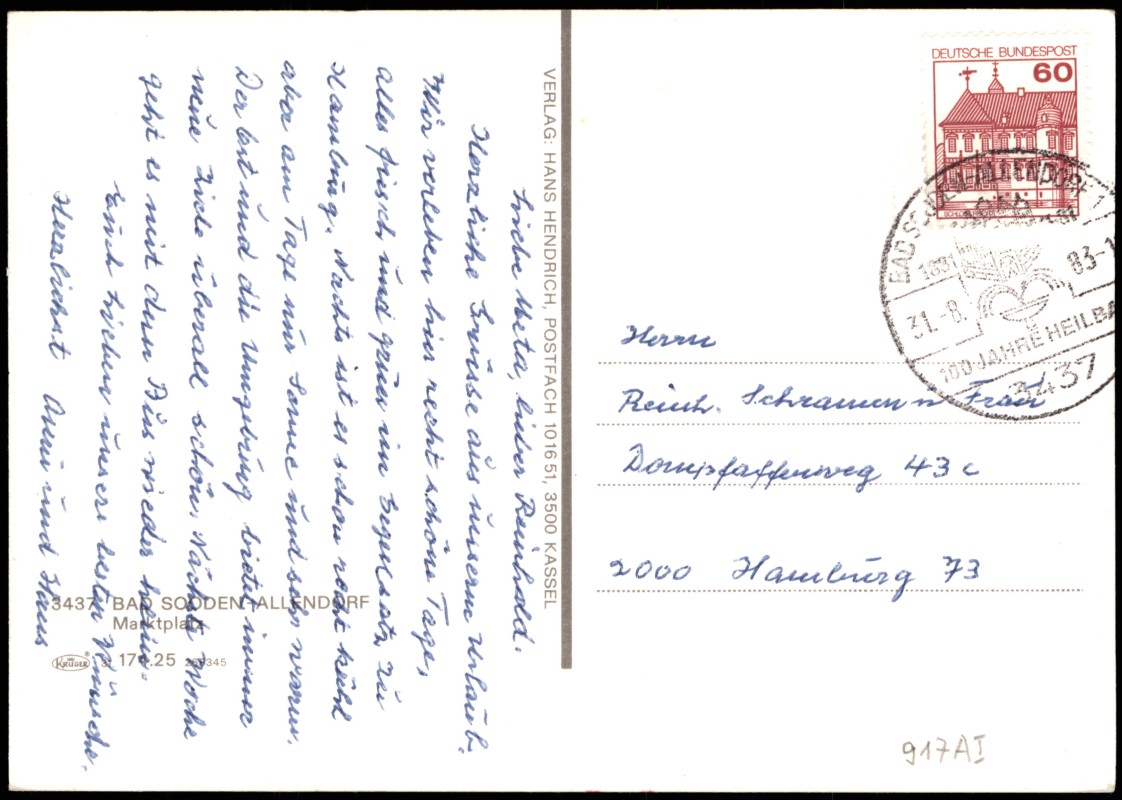 Liebe Meta, lieber Reinhold.
Herzliche Grüsse aus unserm Urlaub.
Wir verleben hier recht schöne Tage,
alles frisch und grün im Gegensatz zu
Hamburg. Nachts ist es schon recht kühl
aber am Tage nur Sonne und sehr warm.
Der Ort und die Umgebung bietet immer
neue Ziele überall schön. Nächste Woche
geht es mit dem Bus wieder heim.
Euch Lieben unsere besten Wünsche.
Herzlichst Anni und Hans
3437 BAD SOODEN-ALLENDORF
Marktplatz
KRÜGER 174.25
VERLAG: HANS HENDRICH, POSTFACH 101651, 3500 KASSEL
DEUTSCHE BUNDESPOST
60
BAD SOODEN-ALLENDORF 1
1881
31.-8. 83-1
100 JAHRE HEILBA
3437
Herrn
Reinh. Schramm u Frau
Dompfaffenweg 43 c
2000 Hamburg 73
917AI